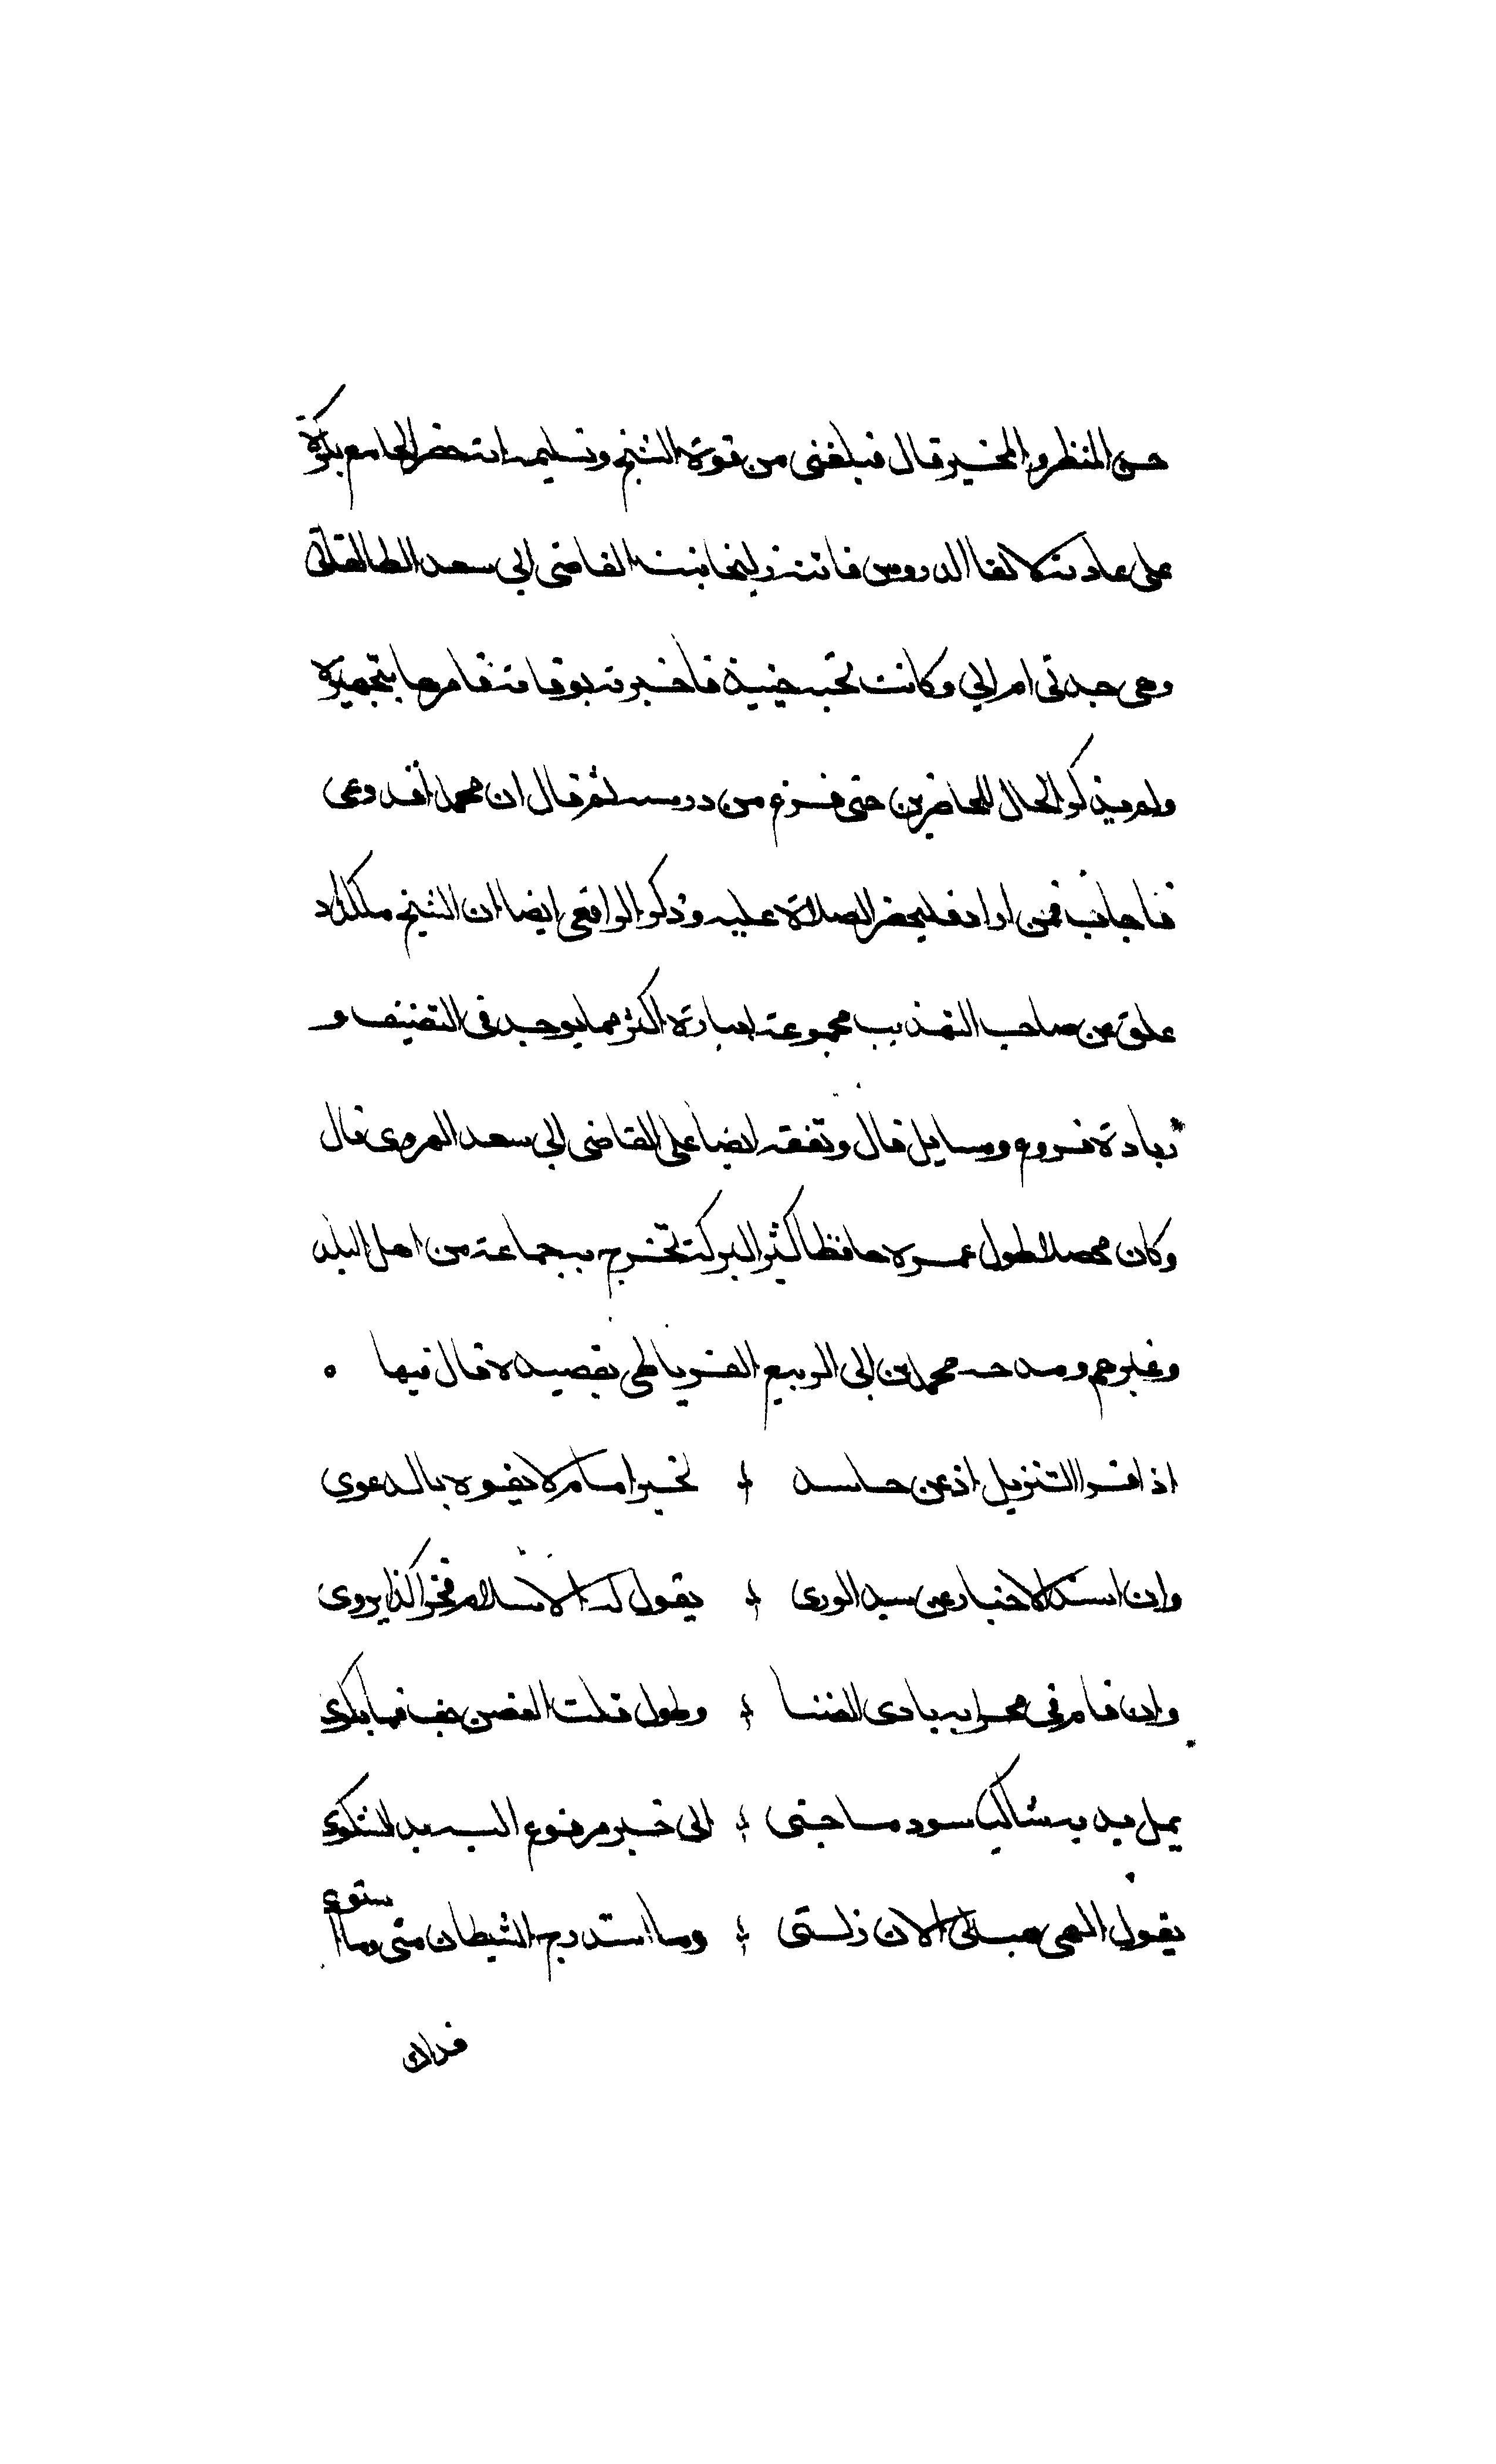 حسن المنظر والمخبر قال فبلغني من قوة الشيخ وتسليمه انه حضر الجامع بكرة
على عادته لالقا الدروس فاتته زليخا بنت القاضي ابي سعد الطالقاني
وهي جدتي ام ابي وكانت تحبه فاخبرته بوفاته فامرها بتجهيزه
ولم يذكر الحال للحاضرين حتى فرغ من درسه ثم قال ان محمدا قد دعي
فاجاب فمن اراد فليحضر الصلاة عليه وذكر الرافعي ايضا ان الشيخ ملكداد
علق عن صاحب التهذيب مجموعه بعبارة اكثر مما يوجد في التصنيف و
زيادة فروع ومسايل قال وتفقه ايضا على القاضي ابي سعد الهروي قال
وكان محصلا طول عمره حافظا كثير البركة تخرج به جماعة من اهل البلد
وغيرهم ومدحه محمد بن ابي الربيع الغرناطي بقصيدة قال فيها ٥
اذا قرا التنزيل اذعن حاسد لخير امام لا يفوه بالدعوى
وان اسند الاخبار عن سيد الورى يقول له الاسلام فخرا كذا يروى
وان قام في محرابه بادي الضنا وطول قلت الغصن جف فما يلوى
يمل يديه شاكيا سود ما جنى الى خير مرفوع اليه يد الشكوى
يقول الهي هب لي الان زلتي وما استدرج الشيطان مني وما استهوى
فداك